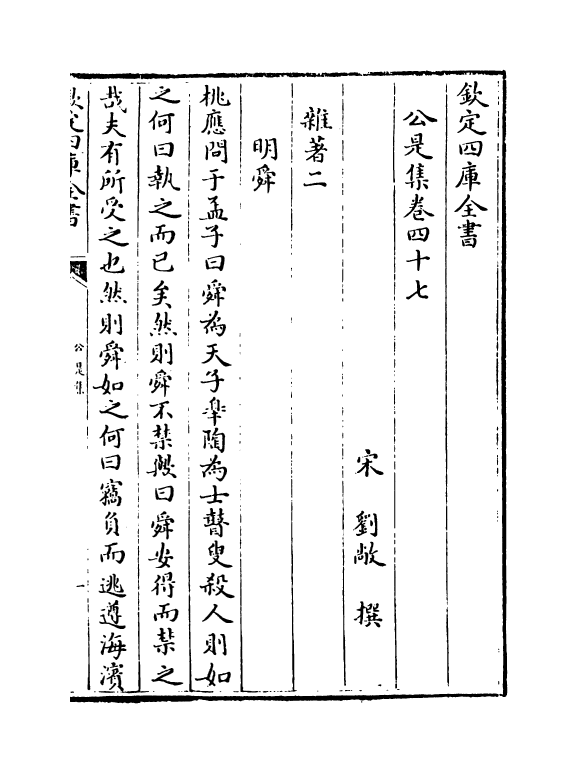 欽定四庫全書
公是集卷四十七
宋 劉敞 撰
雜著二
明舜
桃應問于孟子曰舜為天子臯陶為士瞽叟殺人則如
之何曰執之而已矣然則舜不禁與曰舜安得而禁之
哉夫有所受之也然則舜如之何曰竊負而逃遵海濱
欽定四庫全書
公是集
一